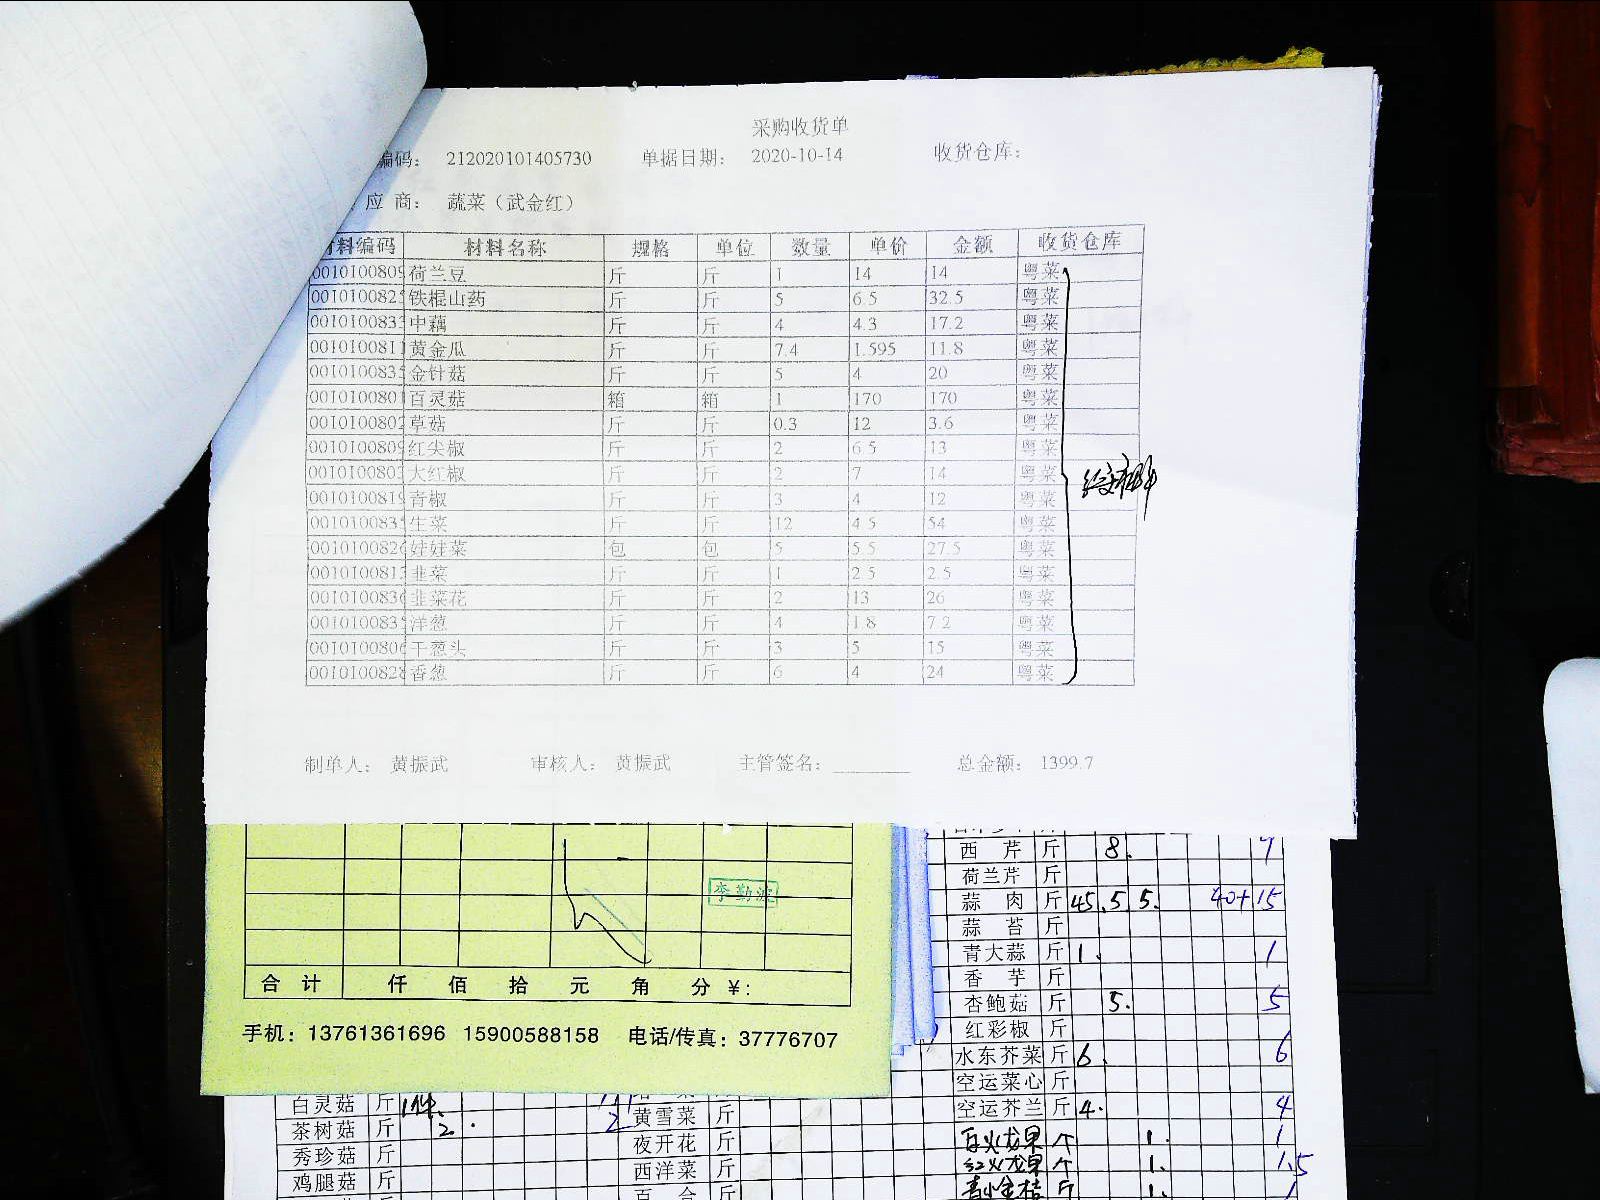 采购收货单
编码： 212020101405730 单据日期： 2020-10-14 收货仓库：
应 商： 蔬菜（武金红）
材料编码 材料名称 规格 单位 数量 单价 金额 收货仓库
0010100809 荷兰豆 斤 斤 1 14 14 粤菜
001010082 铁棍山药 斤 斤 5 6.5 32.5 粤菜
001010083 中藕 斤 斤 4 4.3 17.2 粤菜
001010081 黄金瓜 斤 斤 7.4 1.595 11.8 粤菜
001010083 金针菇 斤 斤 5 4 20 粤菜
001010080 百灵菇 箱 箱 1 170 170 粤菜
001010080 草菇 斤 斤 0.3 12 3.6 粤菜
0010100809 红尖椒 斤 斤 2 6.5 13 粤菜
001010080 大红椒 斤 斤 2 7 14 粤菜
001010081 青椒 斤 斤 3 4 12 粤菜
001010083 生菜 斤 斤 12 4.5 54 粤菜
001010082 娃娃菜 包 包 5 5.5 27.5 粤菜
001010081 韭菜 斤 斤 1 2.5 2.5 粤菜
001010083 韭菜花 斤 斤 2 13 26 粤菜
001010083 洋葱 斤 斤 4 1.8 7.2 粤菜
001010080 干葱头 斤 斤 3 5 15 粤菜
001010082 香葱 斤 斤 6 4 24 粤菜
制单人： 黄振武 审核人： 黄振武 主管签名： 总金额： 1399.7
李勤波
合 计 仟 佰 拾 元 角 分 ¥:
手机：13761361696 15900588158 电话/传真：37776707
西 芹 斤 8.
荷兰芹 斤
蒜 肉 斤 45. 5. 5. 40+15
蒜 苔 斤
青大蒜 斤 1. 1
香 芋 斤
杏鲍菇 斤 5. 5
红彩椒 斤
水东芥菜 斤 6. 6
空运菜心 斤
空运芥兰 斤 4. 4
白火龙果 个 1. 1
红火龙果 个 1. 1.5
青小金桔 斤 1.
白灵菇 斤 1件.
茶树菇 斤 2. 2
秀珍菇 斤
鸡腿菇 斤
黄雪菜 斤
夜开花 斤
西洋菜 斤
百 合 斤